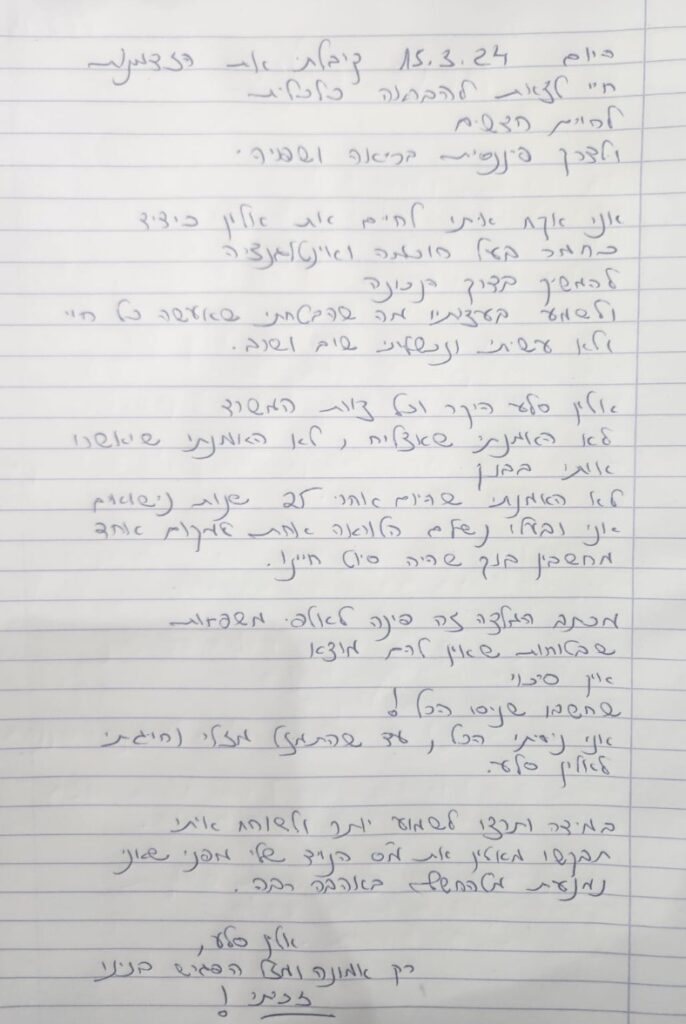 היום 15.3.24 קיבלתי את הזדמנות
חיי לצאת להבראה כלכלית
לחיים חדשים
ולדרך פיננסית בריאה ושפויה.
אני אקח איתי לחיים את אולין כידיד
כחבר בעל חוכמה ואינטלגנציה
להמשיך בדרך הנכונה
ולשמוע בעצותיו מה שהבטחתי שאעשה כל חיי
ולא עשיתי ונכשלתי שוב ושוב.
אולין סלע היקר וכל צוות המשרד
לא האמנתי שאצליח, לא האמנתי שיאשרו
אותי בבנק
לא האמנתי שהיום אחרי 25 שנות נישואים
אני ובעלי נשלם הלוואה אחת ממקום אחד
מחשבון בנק שהיה סיוט חיינו.
מכתב המלצה זה פינה לאלפי משפחות
שבטוחות שאין להם מוצא
אין סיכוי
שחשבו שניסו הכל!
אני ניסיתי הכל, עד שהתמזל מזלי והגעתי
לאולין סלע.
במידה ותרצו לשמוע יותר ולשוחח איתי
תבקשו מאולין את מס הנייד שלי מפני שאני
נמנעת מלהחשף באהבה רבה.
אולין סלע,
רק אמונה ומזל הפגיש ביננו
זכיתי!